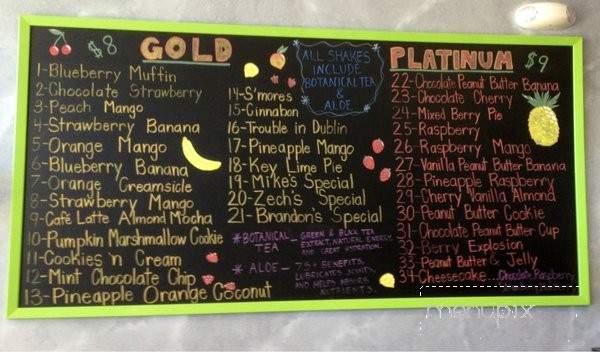 $8 GOLD
1-Blueberry Muffin
2-Chocolate Strawberry
3-Peach Mango
4-Strawberry Banana
5-Orange Mango
6-Blueberry Banana
7-Orange Creamsicle
8-Strawberry Mango
9-Café Latte Almond Mocha
10-Pumpkin Marshmallow Cookie
11-Cookies 'n Cream
12-Mint Chocolate Chip
13-Pineapple Orange Coconut
14-S'mores
15-Cinnabon
16-Trouble in Dublin
17-Pineapple Mango
18-Key Lime Pie
19-Mike's Special
20-Zech's Special
21-Brandon's Special
*BOTANICAL TEA - GREEN & BLACK TEA
EXTRACT, NATURAL ENERGY,
AND GREAT HYDRATION.
*ALOE - 75+ BENEFITS,
LUBRICATES JOINTS,
AND HELPS ABSORB
NUTRIENTS.
ALL SHAKES
INCLUDE
BOTANICAL TEA
&
ALOE
PLATINUM $9
22-Chocolate Peanut Butter Banana
23-Chocolate Cherry
24-Mixed Berry Pie
25-Raspberry
26-Raspberry Mango
27-Vanilla Peanut Butter Banana
28-Pineapple Raspberry
29-Cherry Vanilla Almond
30 Peanut Butter Cookie
31-Chocolate Peanut Butter Cup
32-Berry Explosion
33-Peanut Butter & Jelly
34-Cheesecake...Chocolate, Raspberry
menupix